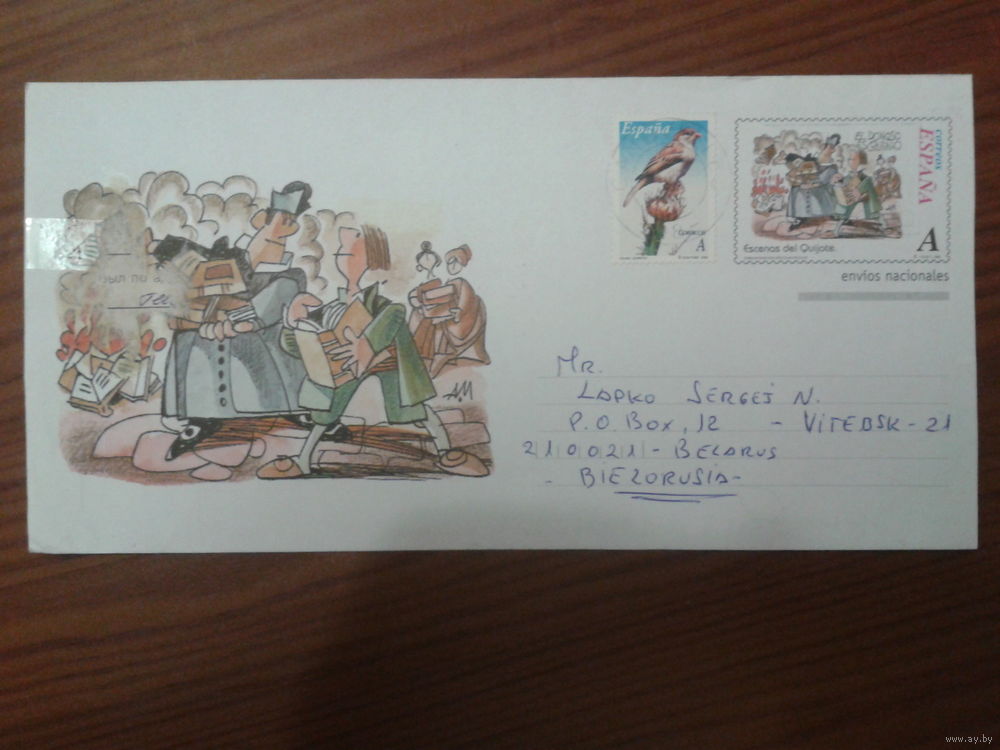 España
correos
A
EL DONOSO
ESCRUTINIO
CORREOS
ESPAÑA
Escenas del Quijote.
A
envíos nacionales
AM
MR.
LAPKO SERGEJ N.
P.O. BOX, 12 - VITEBSK - 21
210021 - BELARUS
- BIELORUSIA -
www.ay.by